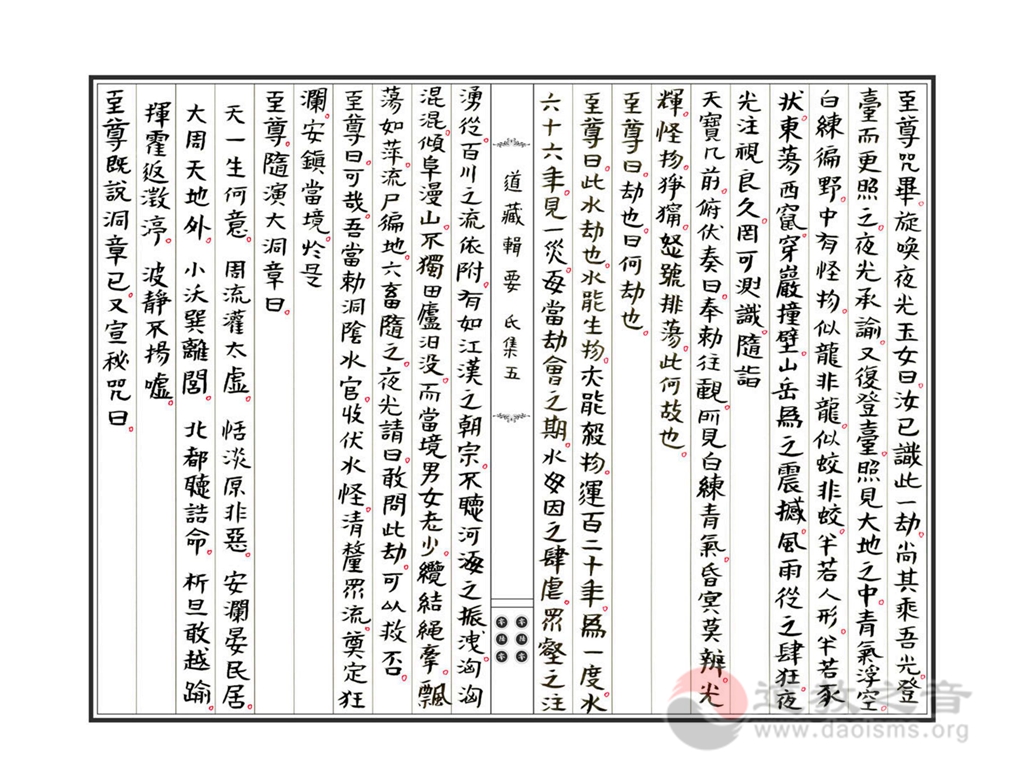 至尊咒畢。旋喚夜光玉女曰。汝已識此一劫。尚其乘吾光登
臺而更照之。夜光承諭。又復登臺。照見大地之中。青氣浮空。
白練徧野。中有怪物。似龍非龍。似蛟非蛟。半若人形。半若豕
狀。東蕩西竄。穿巖撞壁。山岳爲之震撼。風雨從之肆狂。夜
光注視良久。罔可測識。隨詣
天寶几前。俯伏奏曰。奉勅往觀。所見白練青氣。昏冥莫辨。光
輝。怪物猙獰。怒號排蕩。此何故也。
至尊曰。劫也。曰何劫也。
至尊曰。此水劫也。水能生物。亦能殺物。運百二十年。爲一度。水
六十六年。見一災。每當劫會之期。水母因之肆虐。眾壑之注
道藏輯要 氐集五
湧從。百川之流依附。有如江漢之朝宗。不聽河海之振洩。洶洶
混混。傾阜漫山。不獨田廬汨没。而當境男女老少。纜結繩牽。飄
蕩如萍。流尸徧地。六畜隨之。夜光請曰。敢問此劫。可以救否。
至尊曰。可哉。吾當勅洞陰水官。收伏水怪。清釐眾流。奠定狂
瀾。安鎮當境。於是
至尊。隨演大洞章曰。
天一生何意。 周流灌太虛。 恬淡原非惡。 安瀾晏民居。
大周天地外。 小沃巽離閭。 北都聽誥命。 析旦敢越踰。
揮霍返澂渟。 波靜不揚噓。
至尊既說洞章已。又宣秘咒曰。
道教之音
www.daoisms.org